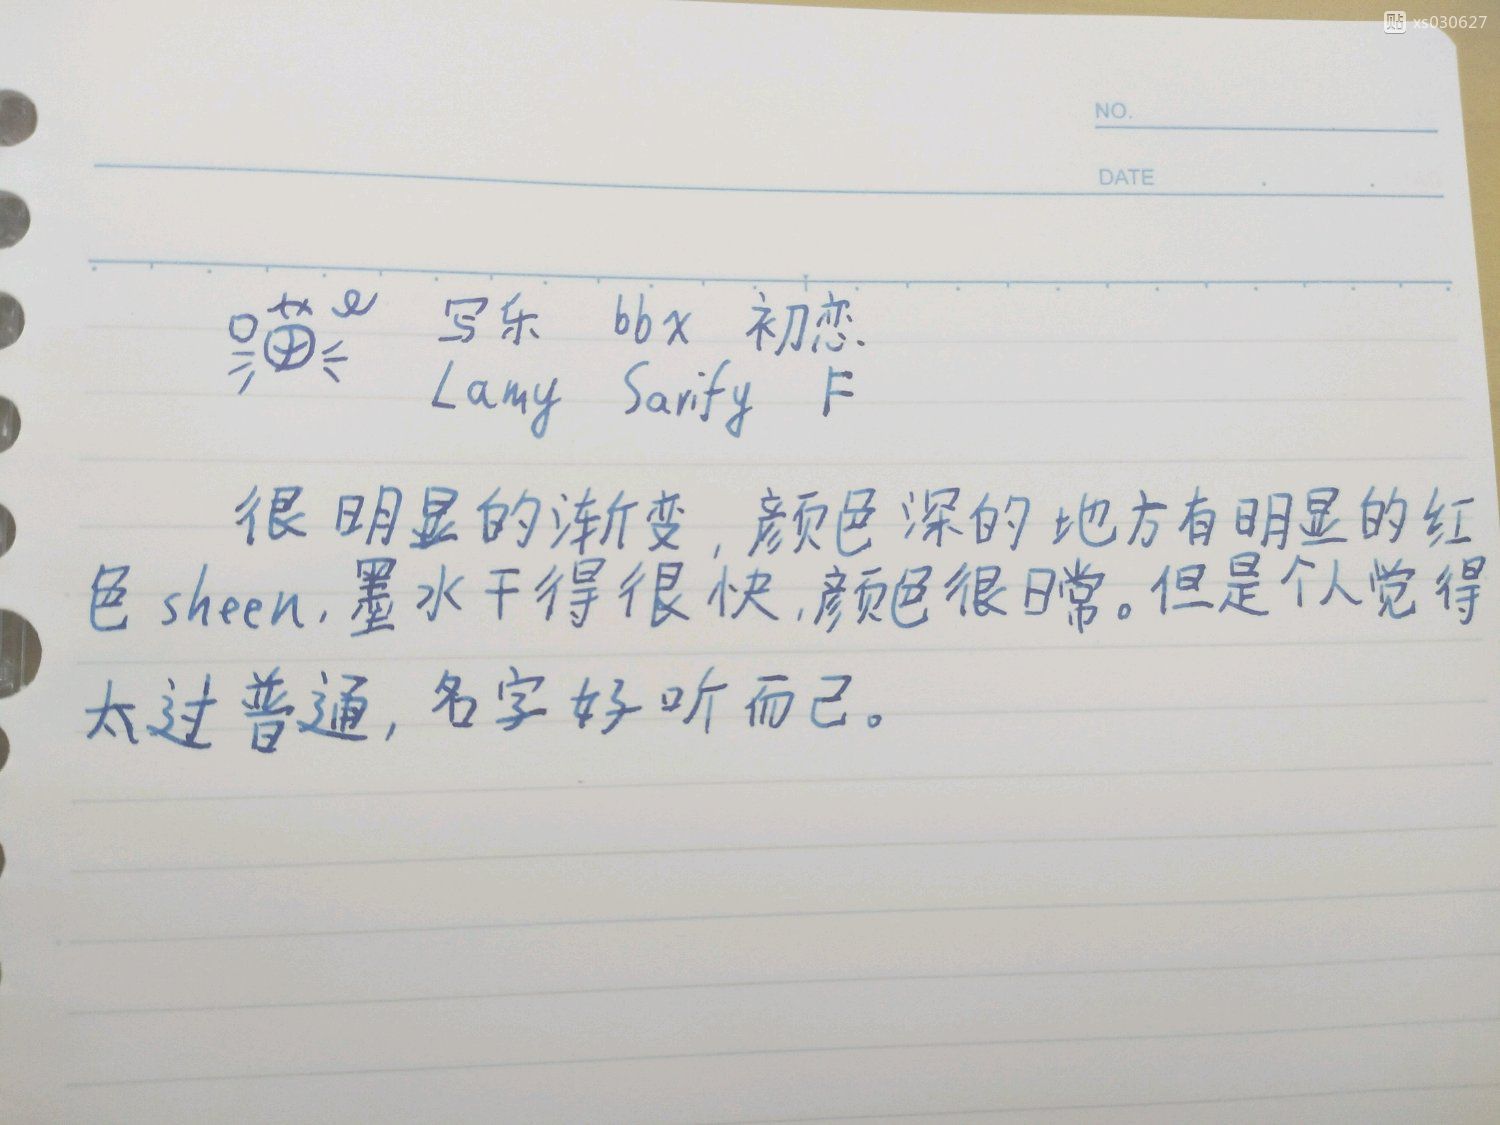 贴 xs030627
NO.
DATE
喵 写乐 bbx 初恋
Lamy Sarify F
很明显的渐变，颜色深的地方有明显的红
色sheen，墨水干得很快，颜色很日常。但是个人觉得
太过普通，名字好听而己。